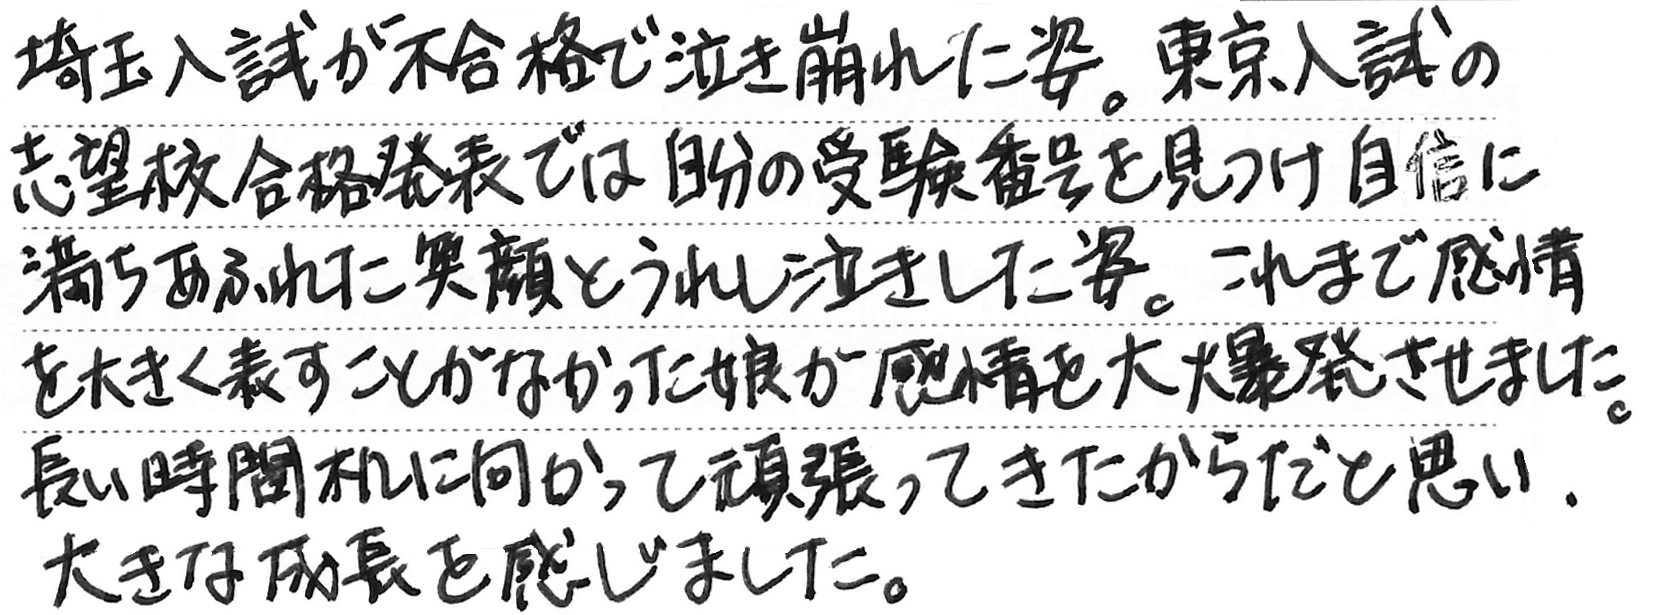 埼玉入試が不合格で泣き崩れた姿。東京入試の
志望校合格発表では自分の受験番号を見つけ自信に
満ちあふれた笑顔とうれし泣きした姿。これまで感情
を大きく表すことがなかった娘が感情を大爆発させました。
長い時間机に向かって頑張ってきたからだと思い、
大きな成長を感じました。